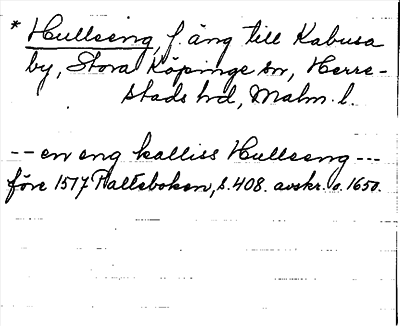 * Hullseng, f äng till Kabusa
by, Stora Köpinge sn, Herre-
stads hd, Malm. l.
-- en eng kalliss Hullseng ---
före 1517 Palteboken, s. 408. avskr. o. 1650.